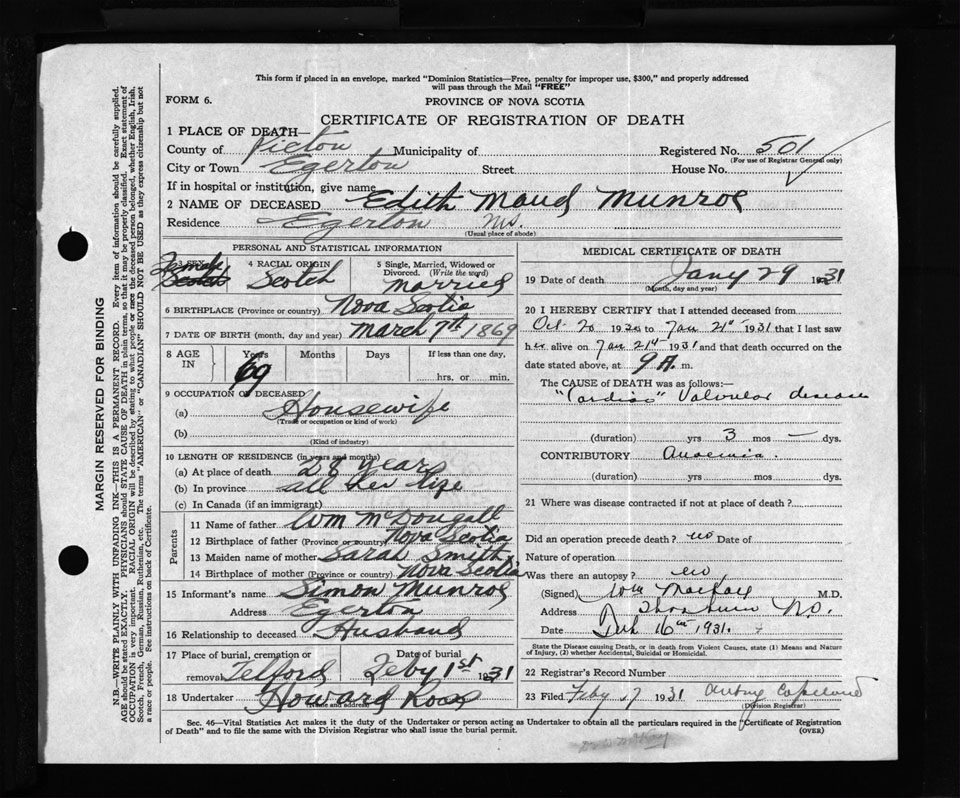 This form if placed in an envelope, marked "Dominion Statistics—Free, penalty for improper use, $300," and properly addressed
will pass through the Mail "FREE"
FORM 6.
PROVINCE OF NOVA SCOTIA
CERTIFICATE OF REGISTRATION OF DEATH
1 PLACE OF DEATH—
County of Pictou Municipality of Registered No. 501
(For use of Registrar General only)
City or Town Egerton Street House No.
If in hospital or institution, give name
2 NAME OF DECEASED Edith Maud Munroe
Residence Egerton N.S.
(Usual place of abode)
PERSONAL AND STATISTICAL INFORMATION
3 SEX Female Scotch
4 RACIAL ORIGIN Scotch
5 Single, Married, Widowed or Divorced. (Write the word) Married
6 BIRTHPLACE (Province or country) Nova Scotia
7 DATE OF BIRTH (month, day and year) March 7th 1869
8 AGE IN Years Months Days If less than one day,
69 hrs. or min.
9 OCCUPATION OF DECEASED
(a) Housewife
(Trade or occupation or kind of work)
(b)
(Kind of industry)
10 LENGTH OF RESIDENCE (in years and months)
(a) At place of death 28 years
(b) In province all her life
(c) In Canada (if an immigrant)
Parents
11 Name of father Wm McDougall
12 Birthplace of father (Province or country) Nova Scotia
13 Maiden name of mother Sarah Smith
14 Birthplace of mother (Province or country) Nova Scotia
15 Informant's name Simon Munroe
Address Egerton
16 Relationship to deceased Husband
17 Place of burial, cremation or removal Telford
Date of burial Feby 1st 1931
18 Undertaker Howard Ross
(Name and address)
MEDICAL CERTIFICATE OF DEATH
19 Date of death Jany 29 1931
(Month, day and year)
20 I HEREBY CERTIFY that I attended deceased from
Oct 20 1930 to Jan 21st 1931 that I last saw
her alive on Jan 21st 1931 and that death occurred on the
date stated above, at 9 A. m.
The CAUSE OF DEATH was as follows:—
"Cardiac" Valvular disease
(duration) yrs 3 mos — dys.
CONTRIBUTORY Anaemia.
(duration) yrs mos dys.
21 Where was disease contracted if not at place of death?
Did an operation precede death? no Date of
Nature of operation
Was there an autopsy? no
(Signed) Wm MacKay M.D.
Address Thorburn N.S.
Date Feb 16th 1931.
State the Disease causing Death, or in death from Violent Causes, state (1) Means and Nature
of Injury, (2) whether Accidental, Suicidal or Homicidal.
22 Registrar's Record Number
23 Filed Feby 17 1931 Copeland
(Division Registrar)
Sec. 46—Vital Statistics Act makes it the duty of the Undertaker or person acting as Undertaker to obtain all the particulars required in the "Certificate of Registration
of Death" and to file the same with the Division Registrar who shall issue the burial permit. (OVER)
MARGIN RESERVED FOR BINDING
N.B.—WRITE PLAINLY WITH UNFADING INK—THIS IS A PERMANENT RECORD. Every item of information should be carefully supplied.
AGE should be stated EXACTLY. PHYSICIANS should STATE CAUSE OF DEATH in plain terms, so that it may be properly classified. Exact statement of
OCCUPATION is very important. RACIAL ORIGIN will be described by stating to what people or race the deceased person belonged, whether English, Irish,
Scotch, French, German, Russian, Ruthenian, etc. The terms "AMERICAN" or "CANADIAN" SHOULD NOT BE USED as they express citizenship but not
a race or people. See instructions on back of Certificate.